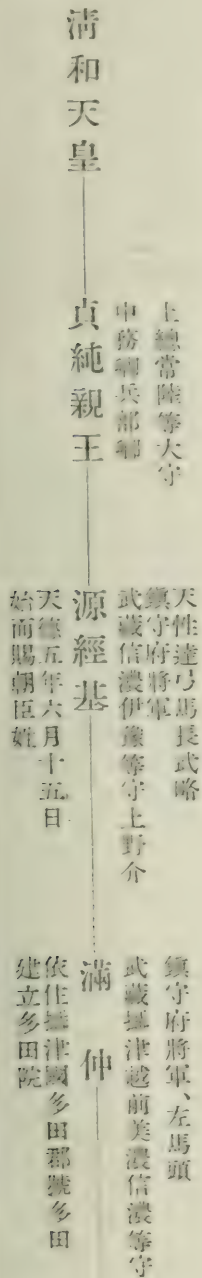 清和天皇
上總常陸等大守
中務卿兵部卿
貞純親王
天性達弓馬長武略
鎭守府將軍
武藏信濃伊豫等守上野介
源經基
天德五年六月十五日
始而賜朝臣姓
鎭守府將軍、左馬頭
武藏攝津越前美濃信濃等守
滿仲
依住攝津國多田郡號多田
建立多田院